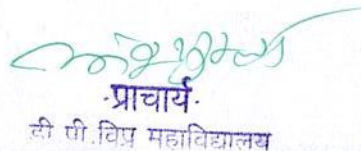 ·प्राचार्य·
डी.पी.विप्र महाविद्यालय